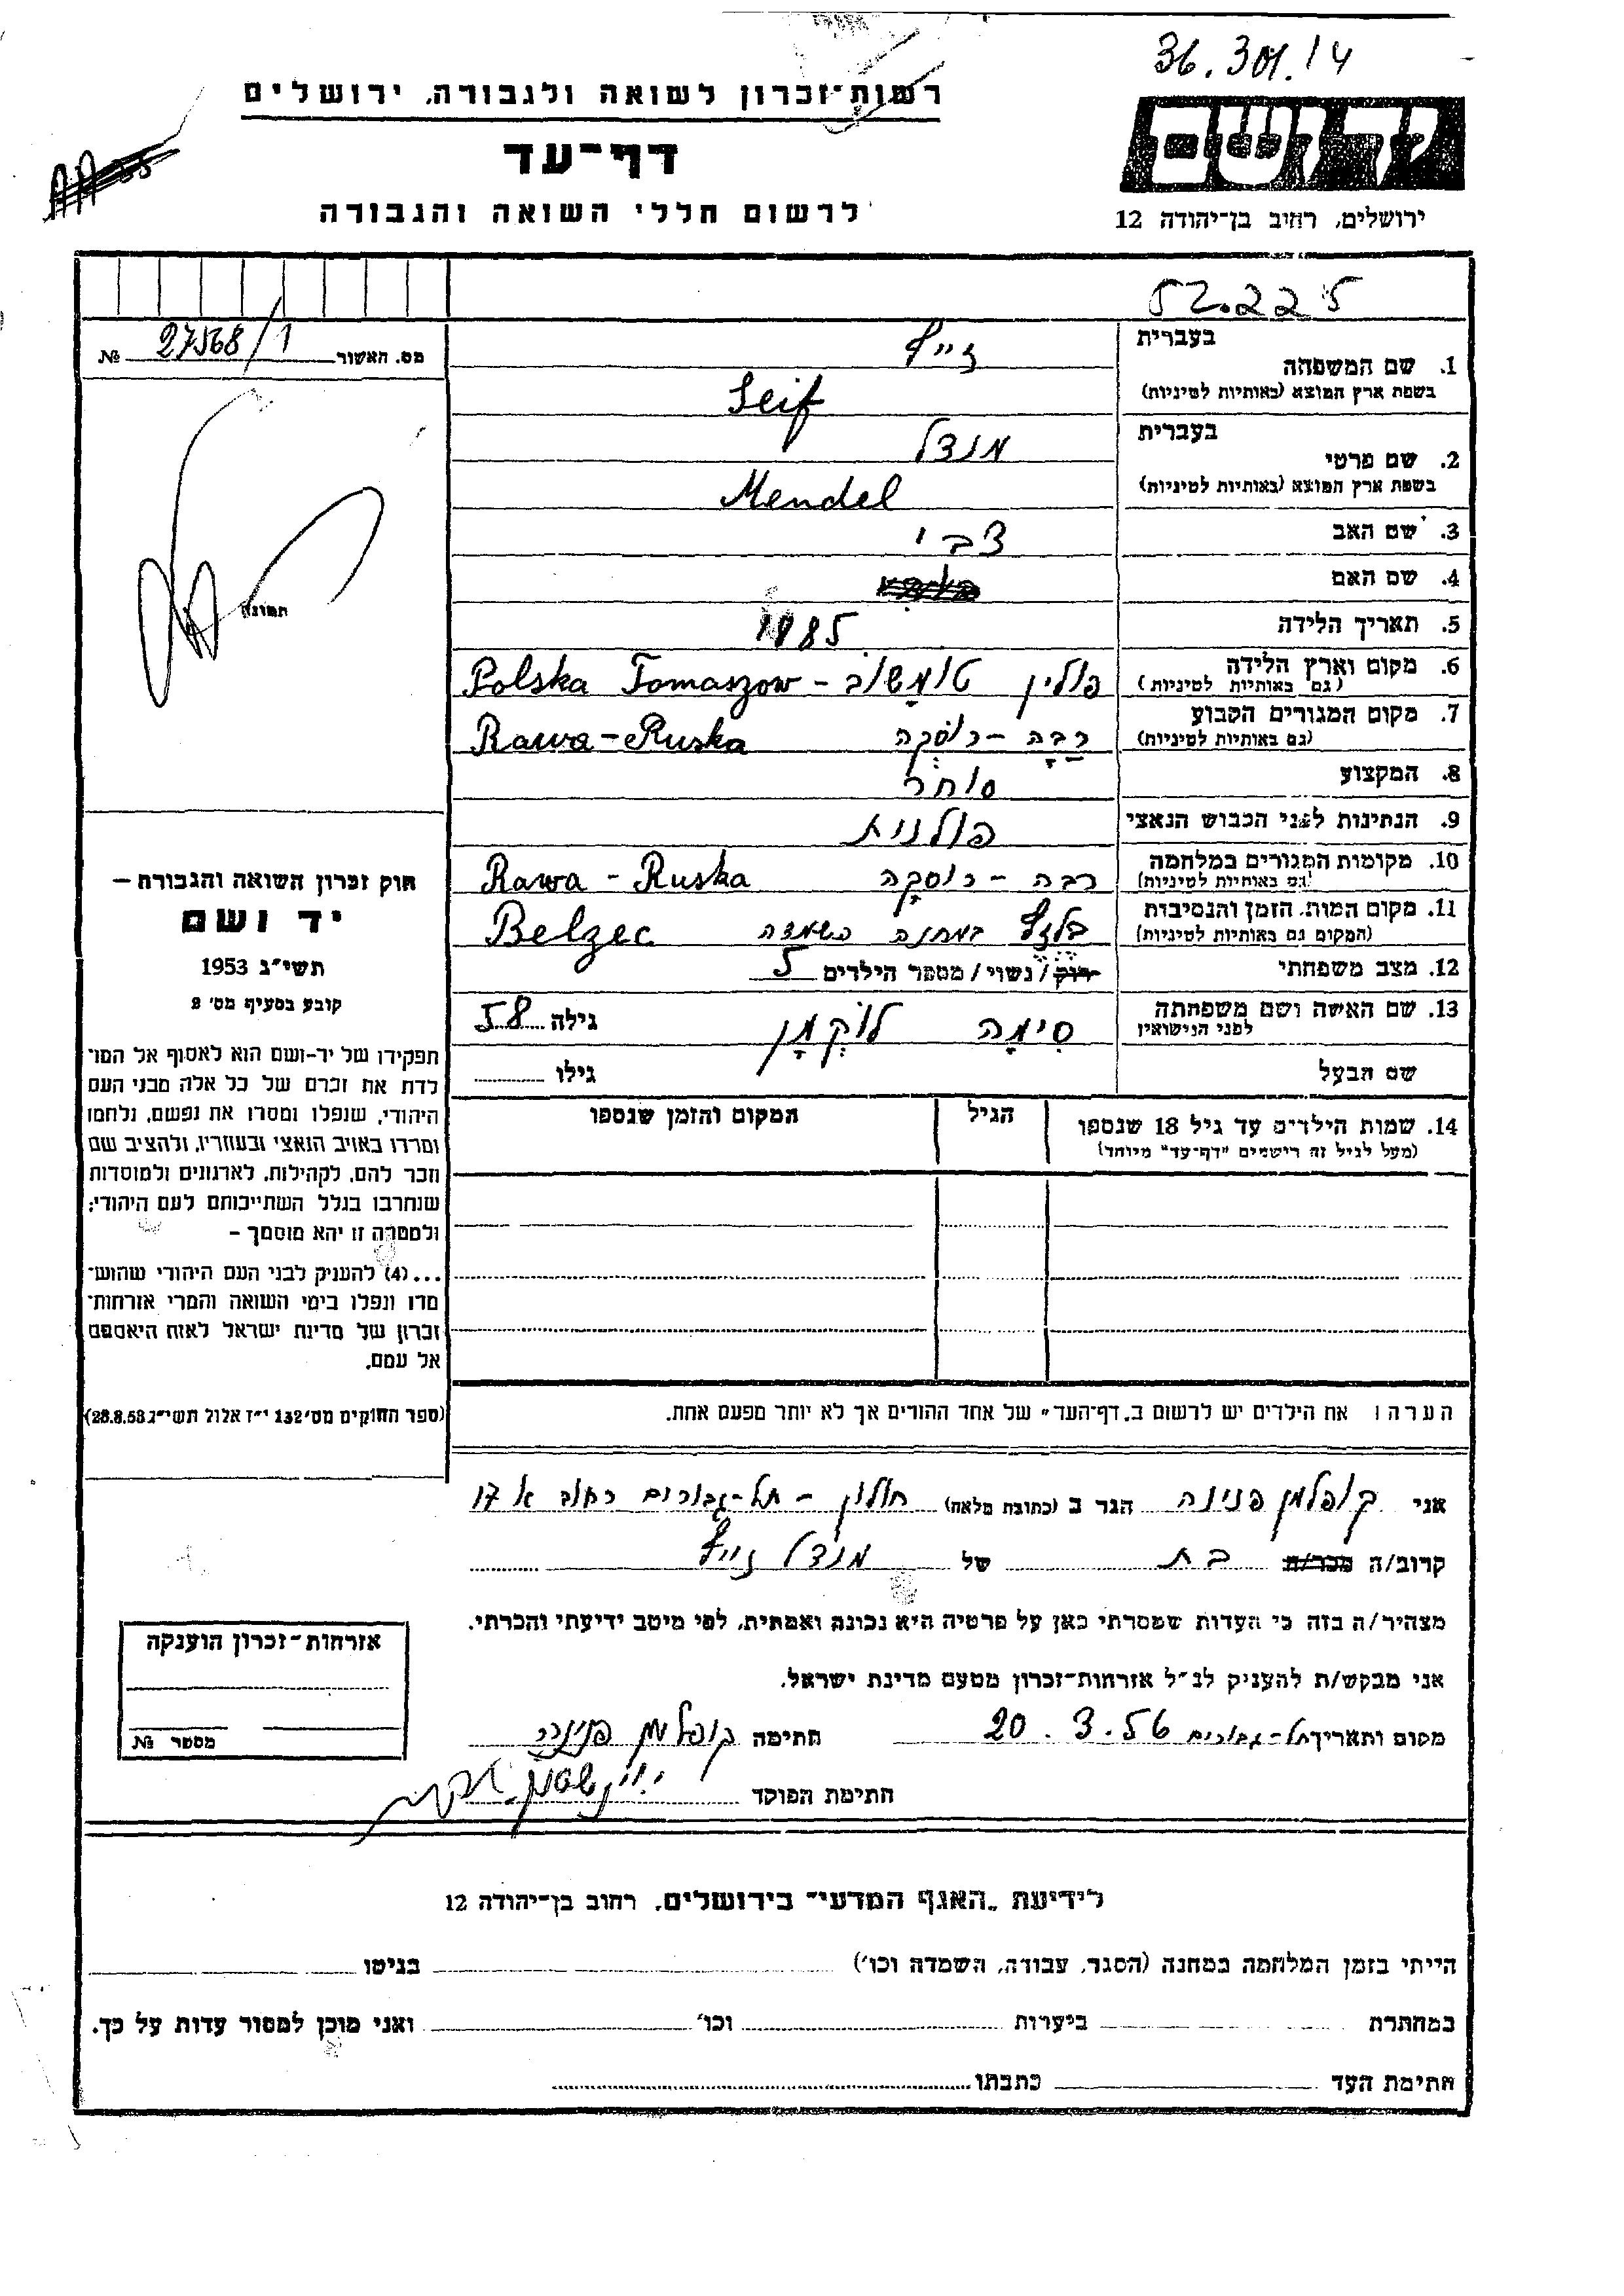 36.301.14
רשות־זכרון לשואה ולגבורה, ירושלים
דף־עד
לרשום חללי השואה והגבורה
ידושם
ירושלים, רחוב בן־יהודה 12
52.225
מס. האשור 27568/1 №
בעברית
1. שם המשפחה זייף
בשפת ארץ המוצא (באותיות לטיניות) Seif
בעברית
2. שם פרטי מנדל
בשפת ארץ המוצא (באותיות לטיניות) Mendel
3. שם האב צבי
4. שם האם
5. תאריך הלידה 1885
6. מקום וארץ הלידה (גם באותיות לטיניות) פולין טומשוב - Polska Tomaszow
7. מקום המגורים הקבוע (גם באותיות לטיניות) רבה - רוסקה Rawa-Ruska
8. המקצוע סוחר
9. הנתינות לפני הכבוש הנאצי פולנית
10. מקומות המגורים במלחמה (גם באותיות לטיניות) רבה - רוסקה Rawa-Ruska
11. מקום המות, הזמן והנסיבות (המקום גם באותיות לטיניות) בלזץ במחנה השמדה Belzec
12. מצב משפחתי רווק/נשוי/מספר הילדים 5
13. שם האשה ושם משפחתה לפני הנישואין סימה לוקמן גילה 58
שם הבעל גילו
14. שמות הילדים עד גיל 18 שנספו הגיל המקום והזמן שנספו
(מעל לגיל זה רישמים "דף־עד" מיוחד)
הערה: את הילדים יש לרשום ב„דף־העד" של אחד ההורים אך לא יותר מפעם אחת.
תמונה
חוק זכרון השואה והגבורה –
יד ושם
תשי"ג 1953
קובע בסעיף מס' 2
תפקידו של יד-ושם הוא לאסוף אל המו־
לדת את זכרם של כל אלה מבני העם
היהודי, שנפלו ומסרו את נפשם, נלחמו
ומרדו באויב הנאצי ובעוזריו, ולהציב שם
וזכר להם, לקהילות, לארגונים ולמוסדות
שנחרבו בגלל השתייכותם לעם היהודי;
ולמטרה זו יהא מוסמך –
...(4) להעניק לבני העם היהודי שהוש־
מדו ונפלו בימי השואה והמרי אזרחות־
זכרון של מדינת ישראל לאות היאספם
אל עמם.
(ספר החוקים מס' 132 י"ז אלול תשי"ג 28.8.53)
אני קופלמן פנינה הגר ב (כתובת מלאה) חולון - תל-גבורים רחוב א 17
קרוב/ה מכר/ה בת של מנדל זייף
מצהיר/ה בזה כי העדות שמסרתי כאן על פרטיה היא נכונה ואמתית, לפי מיטב ידיעתי והכרתי.
אני מבקש/ת להעניק לנ"ל אזרחות־זכרון מטעם מדינת ישראל.
מקום ותאריך תל-גבורים 20.3.56 חתימה קופלמן פנינה
חתימת הפוקד
אזרחות־זכרון הוענקה
מספר №
לידיעת „האגף המדעי" בירושלים, רחוב בן־יהודה 12
הייתי בזמן המלחמה במחנה (הסגר, עבודה, השמדה וכו') בגיטו
במחתרת ביערות וכו' ואני מוכן למסור עדות על כך.
חתימת העד כתבתו